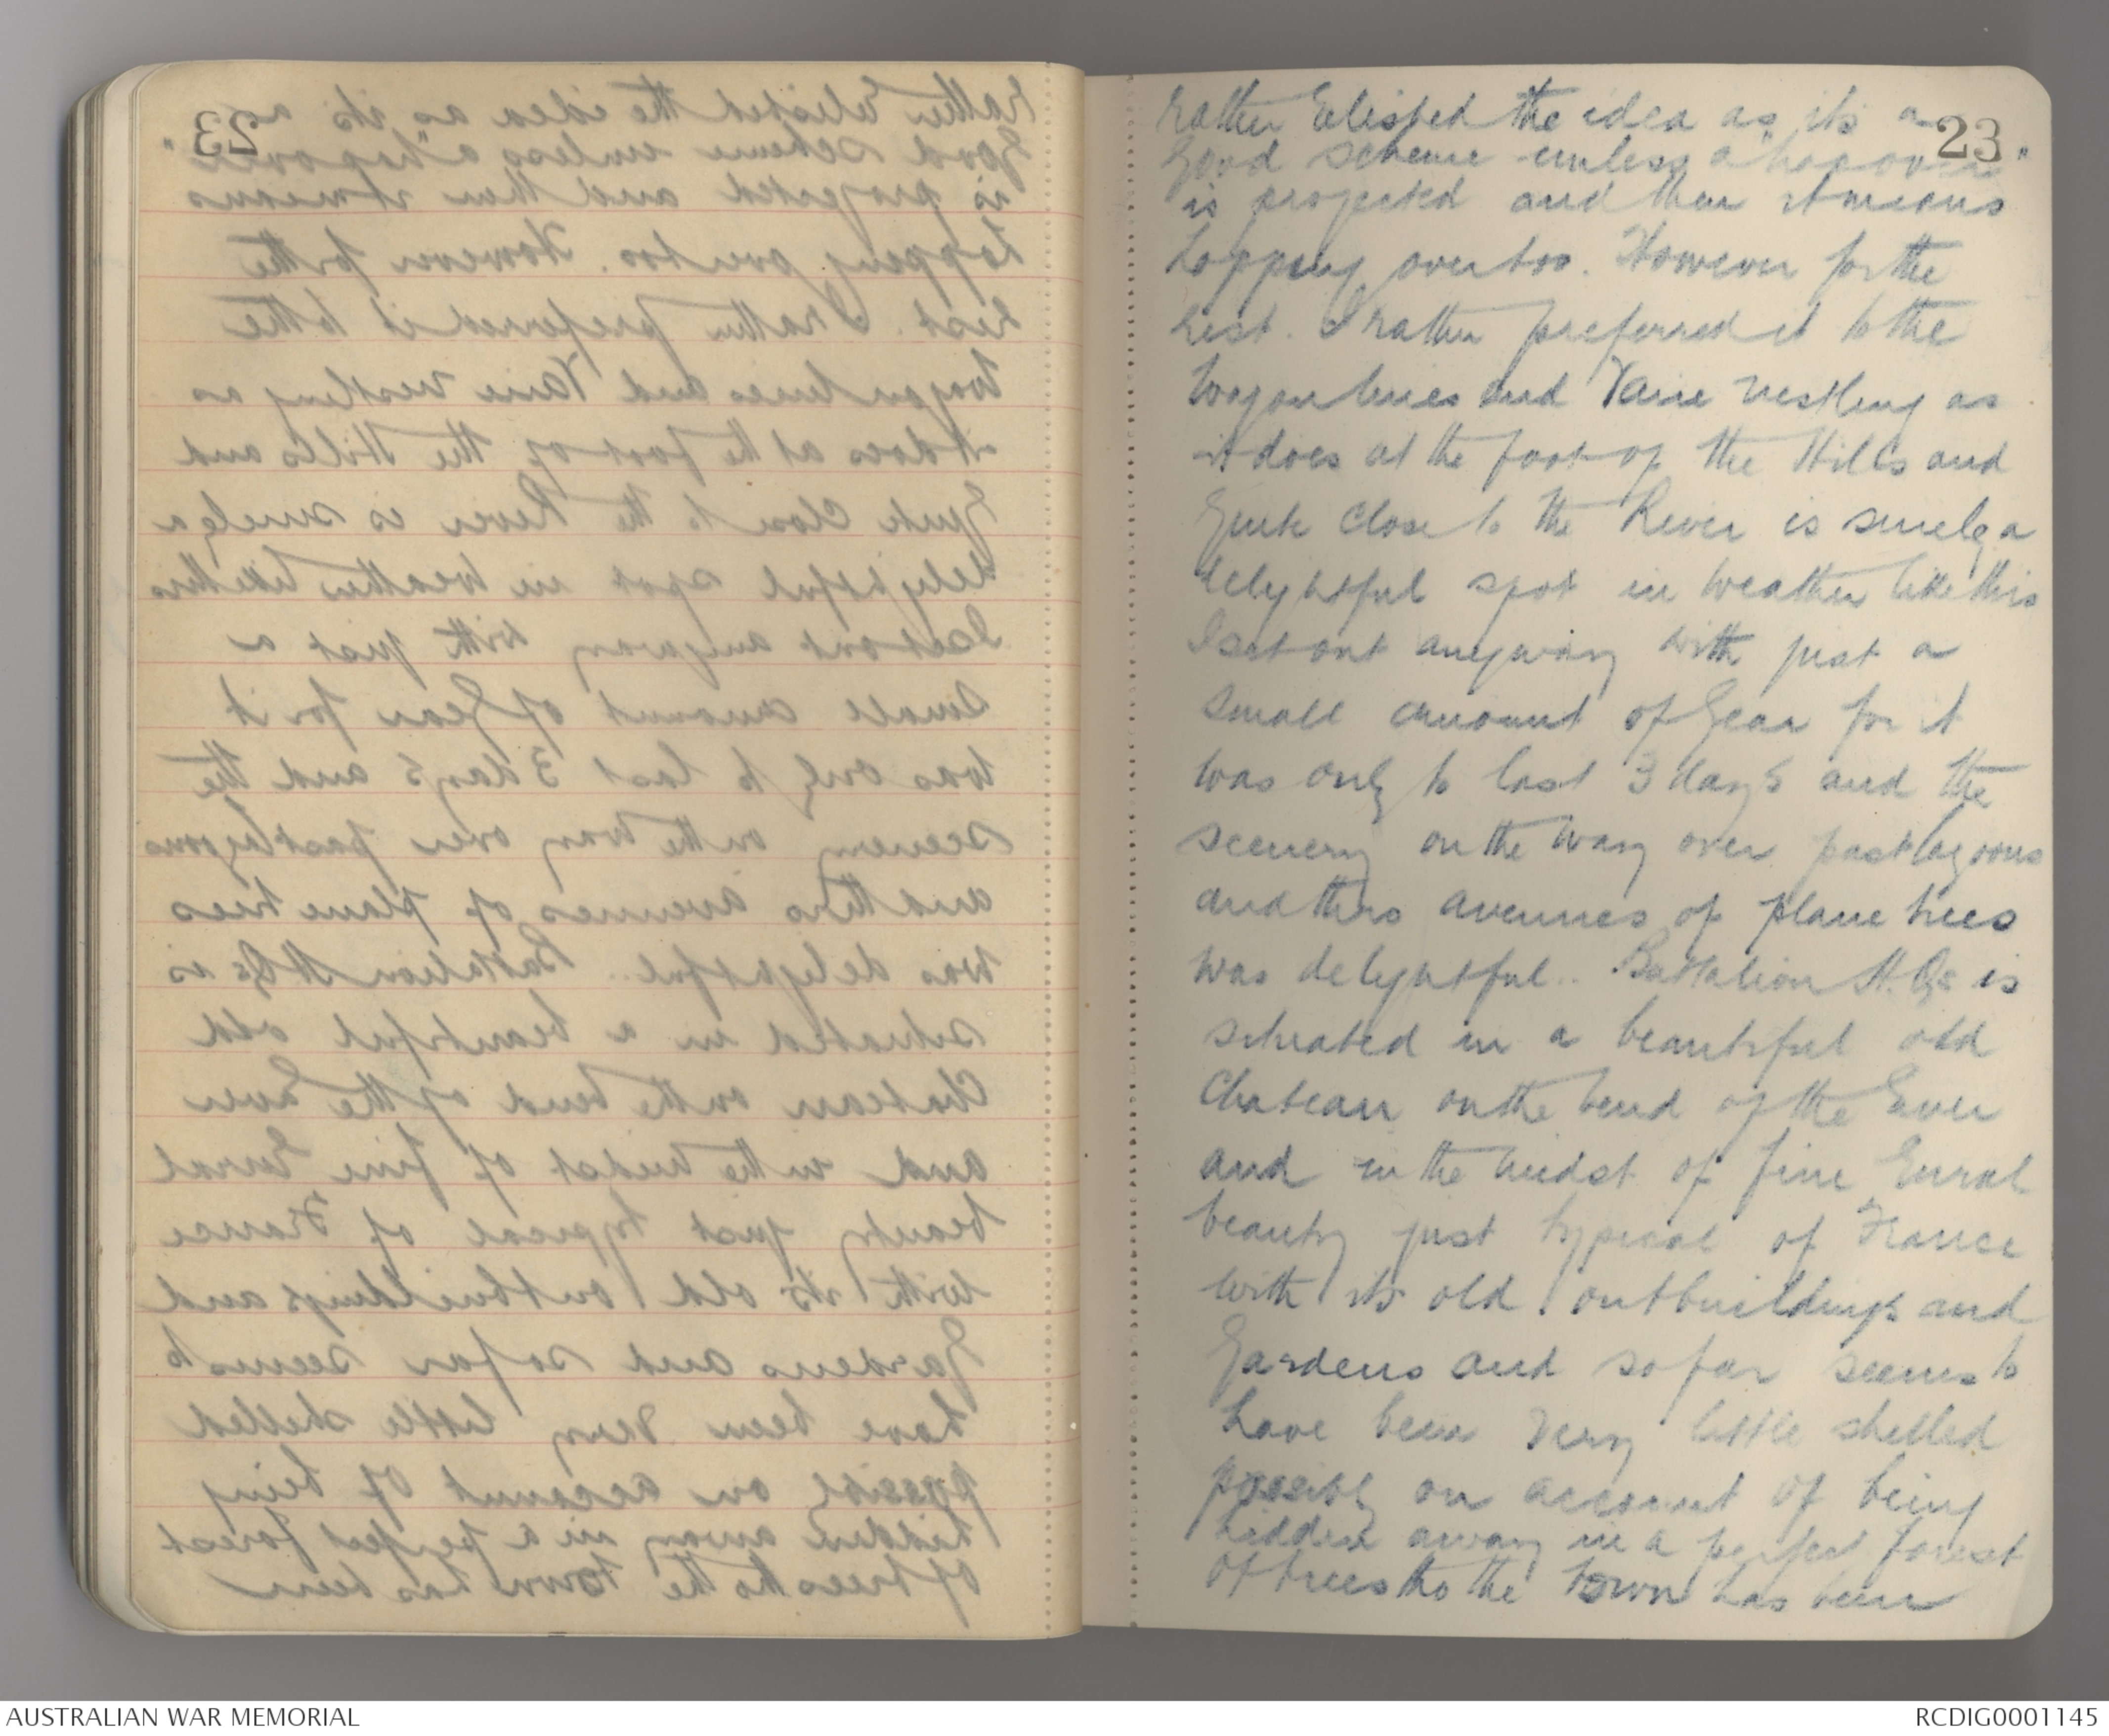 23
rather relished the idea as its a
good scheme unless a "hop over"
is projected and then it means
hopping over too. However for the
rest. I rather preferred it to the
wagon lines and Vaire nestling as
it does at the foot of the Hills and
quite close to the River is surely a
delightful spot in weather like this
I set out anyway with just a
small amount of gear for it
was only to last 3 days and the
scenery on the way over past lagoons
and thro avenues of plane trees
was delightful.. Battalion H.Qs is
situated in a beautiful old
Chateau on the bend of the River
and in the midst of fine rural
beauty just typical of France
with its old outbuildings and
gardens and so far seems to
have been very little shelled
possibly on account of being
hidden away in a perfect forest
of trees tho the town has been
AUSTRALIAN WAR MEMORIAL
RCDIG0001145